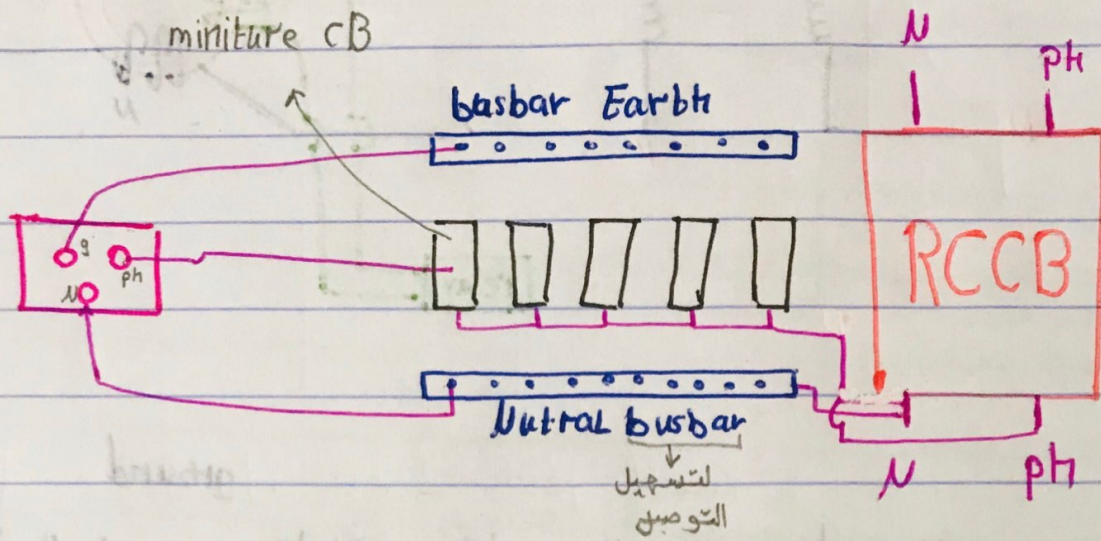 miniture CB
N
ph
busbar Earth
g
ph
N
RCCB
Nutral busbar
لتسهيل
التوصيل
N
ph